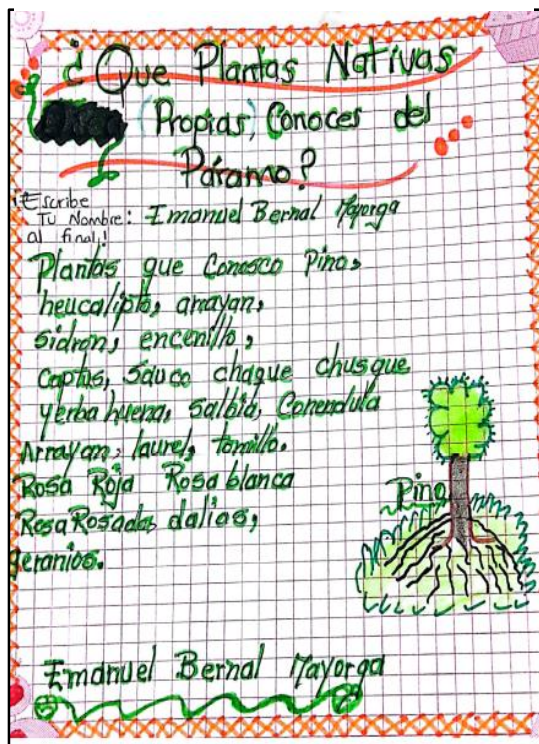 ¿Que Plantas Nativas
(Propias) Conoces del
Páramo?
¡Escribe
Tu Nombre: Emanuel Bernal Mayorga
al final!
Plantas que Conosco Pino,
heucalipto, arrayan,
sidron, encenillo,
Captus, Sauco chaque chusque
yerba huena, salbia, Conendula
Arrayan, laurel, tomillo,
Rosa Roja Rosa blanca
Rosa Rosada, dalias,
geranios.
Pino
Emanuel Bernal Mayorga